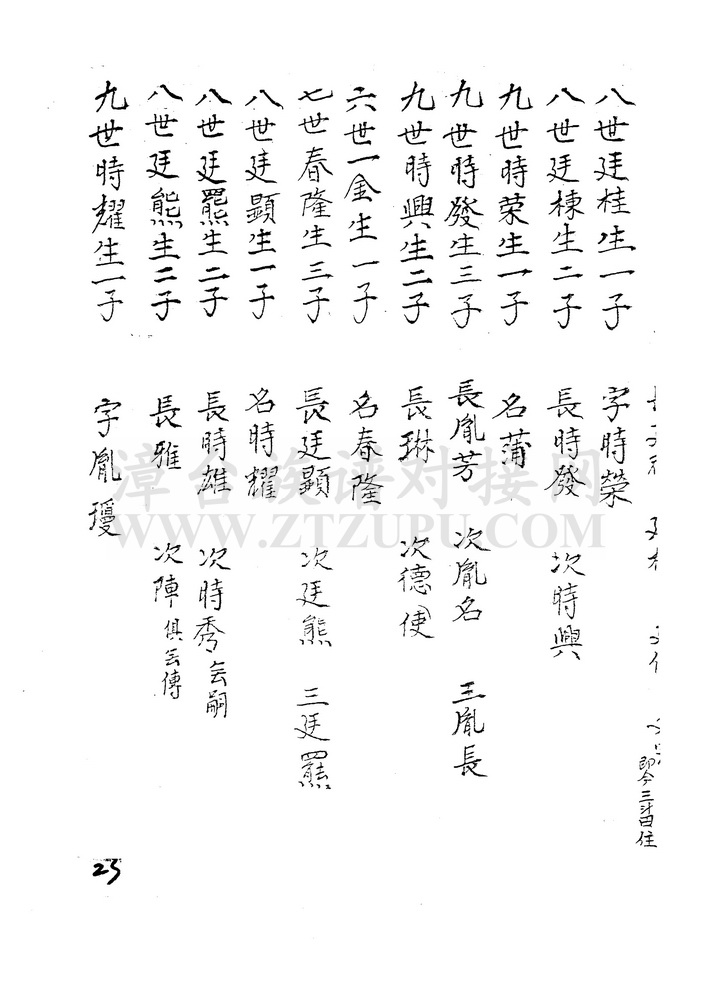 即今三斗田住
八世廷桂生一子 字時榮
八世廷棟生二子 長時發 次時興
九世時荣生一子 名蒲
九世時發生三子 長胤芳 次胤名 三胤長
九世時興生二子 長琳 次德使
六世一金生一子 名春隆
七世春隆生三子 長廷顯 次廷熊 三廷羆
八世廷顯生一子 名時耀
八世廷羆生二子 長時雄 次時秀 無嗣
八世廷熊生二子 長雅 次陣 俱無傳
九世時耀生一子 字胤瓊
23
漳台族谱对接网
WWW.ZTZUPU.COM